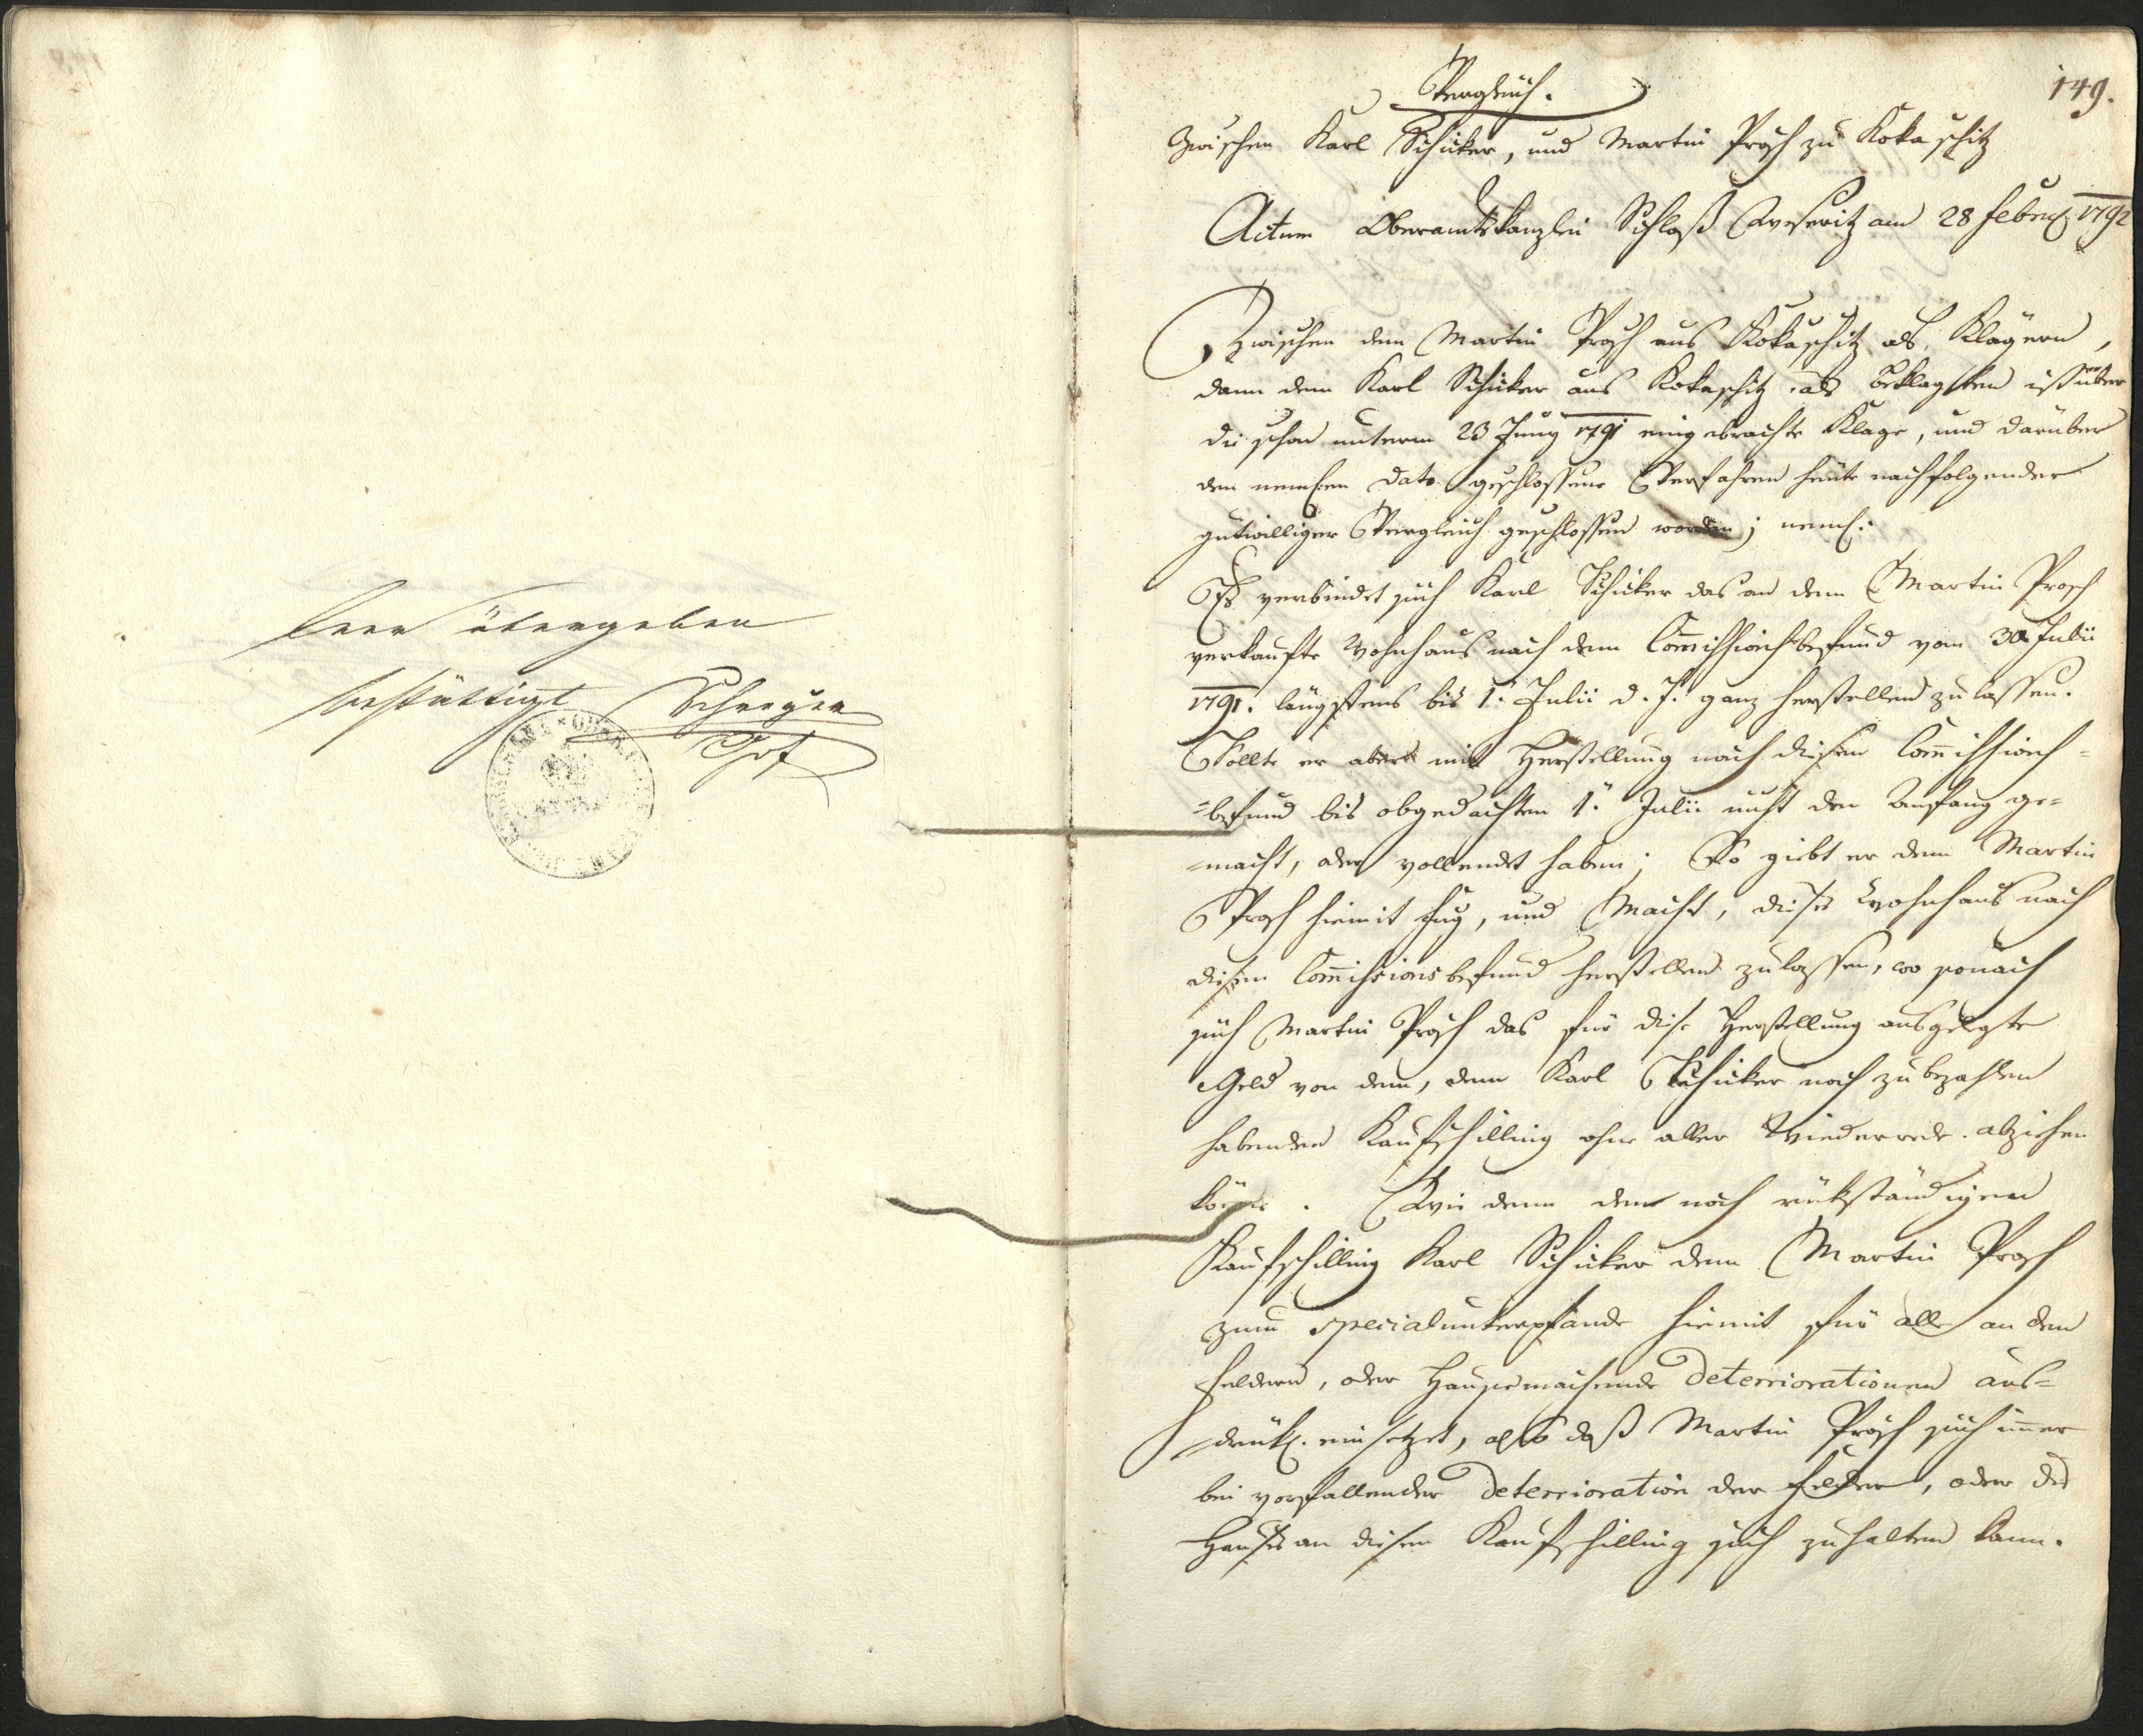 leer übergeben
bestättigt Schreyer
149.
Vergleich.
Zwischen Karl Schicker, und Martin Prosch zu Kokaschitz
Actum Oberamtskanzlei Schloß Weseritz am 28 Februar 1792
Zwischen dem Martin Prosch aus Kokaschitz als Klägern,
dann dem Karl Schicker aus Kokaschitz als Beklagten ist über
die schon unterm 23 Juny 1791 eingebrachte Klage, und darüber
den neml: Dato geschlossene Verfahren heute nachfolgender
gutwilliger Vergleich geschlossen worden; neml:
Es verbindet sich Karl Schicker das an dem Martin Prosch
verkaufte Wohnhaus nach dem Com̅issionsbefund vom 30 Julii
1791. längstens bis 1. Julii d. J. ganz herstellen zu lassen.
Sollte er aber mit Herstellung nach diesem Com̅issions=
=befund bis obgedachten 1. Julii nicht den Anfang ge=
=macht, oder vollendet haben; So giebt er dem Martin
Prosch hiemit Fug, und Macht, dieses Wohnhaus nach
diesem Com̅issionsbefund herstellen zu lassen, wo sonach
sich Martin Prosch das für diese Herstellung ausgelegte
Geld von dem, dem Karl Schicker noch zu bezahlen
habenden Kaufschilling ohne aller Wiederrede abziehen
könne. Wie denn den noch rükständigen
Kaufschilling Karl Schicker dem Martin Prosch
zum specialunterpfande hiemit für alle an den
Feldern, oder Haus machende Deteriorationen aus=
=drükl. einsetzet, also daß Martin Prosch sich im̅er
bei vorfallender Deterioration der Felder, oder des
Hauses an diesen Kaufschilling sich zu halten kann.